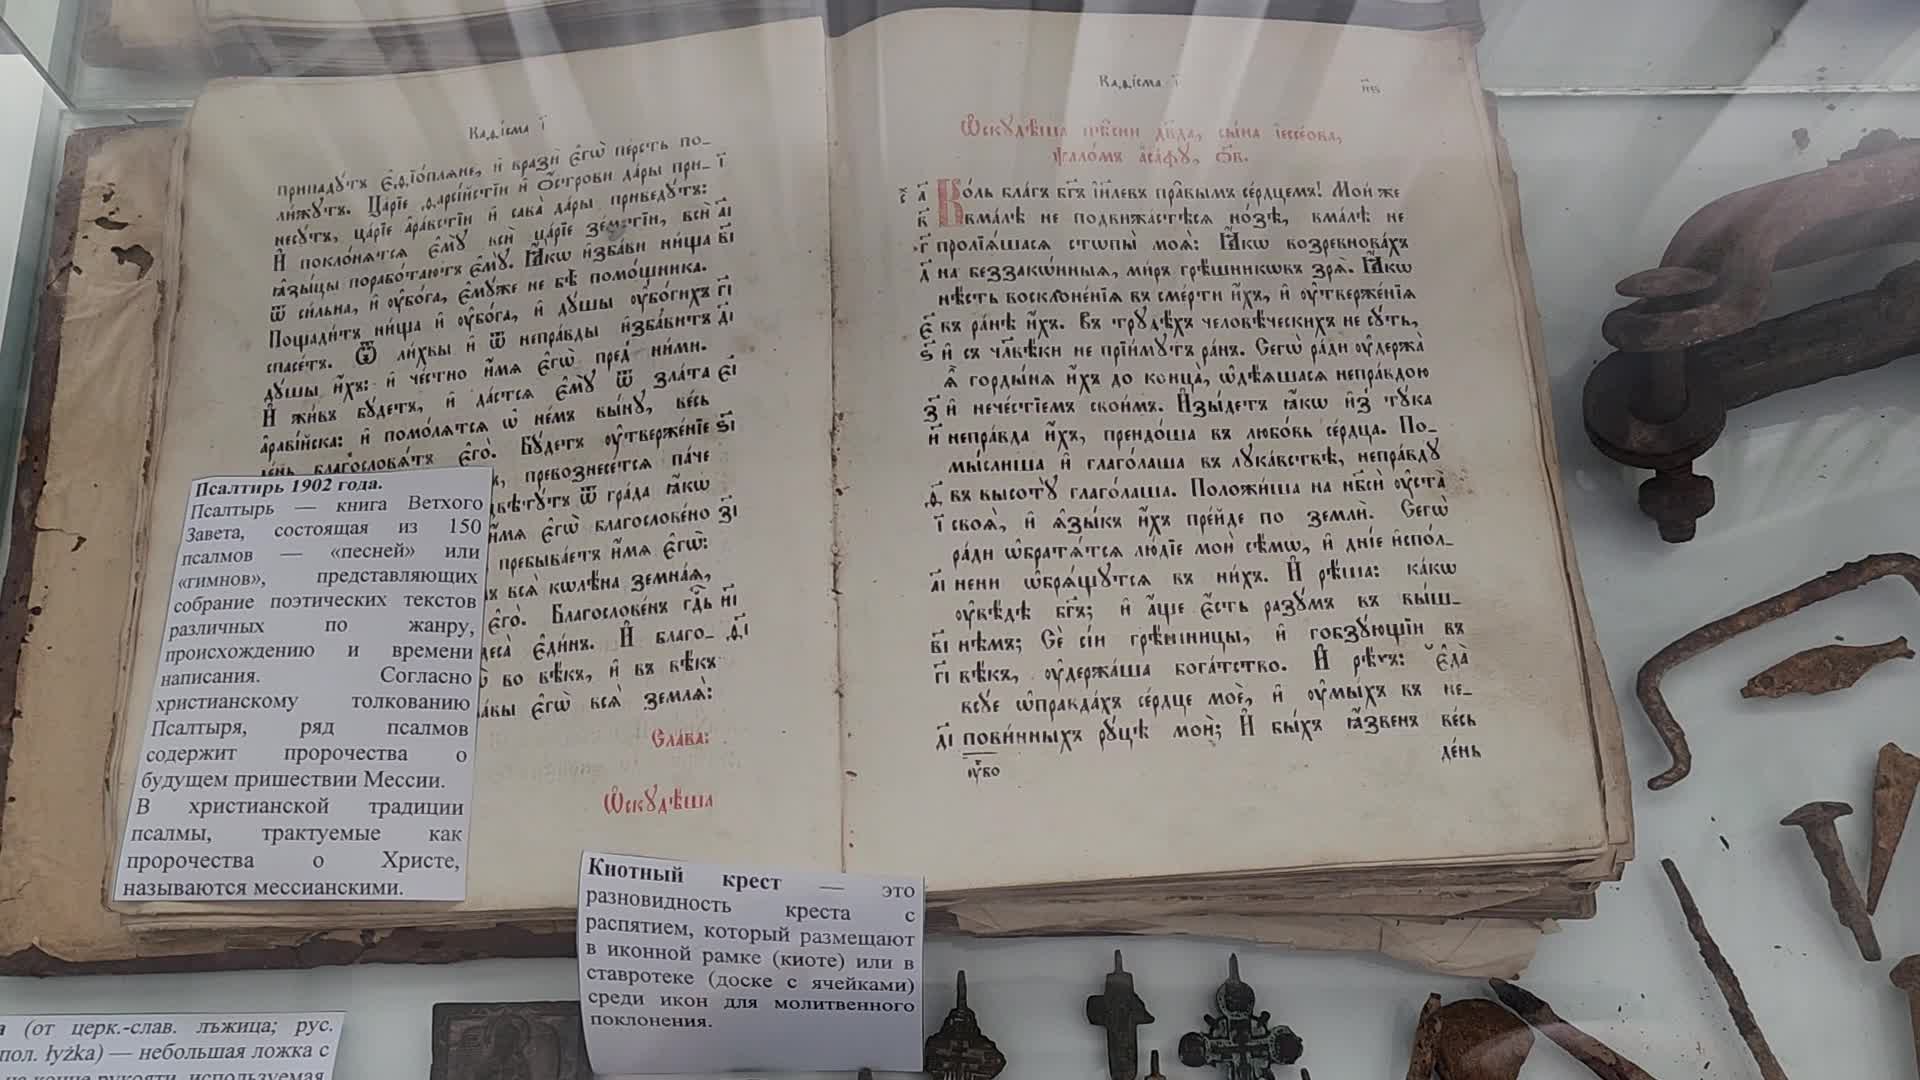 Каѳі́сма і҃
припаду́тъ є҆ѳіо́пляне, и҆ вразѝ є҆гѡ̀ пе́рсть по-
ли́жутъ. Ца́рїе ѳарсі́йстїи и҆ О҆́строви да́ры при- і҃
несу́тъ, ца́рїе а҆ра́встїи и҆ сава̀ да́ры приведу́тъ:
И҆ покло́нятся є҆мꙋ̀ всѝ ца́рїе зе́мстїи, всѝ а҃і
ꙗ҆зы́цы порабо́таютъ є҆мꙋ̀. Ꙗ҆́кѡ и҆зба́ви ни́ща в҃і
ѿ си́льна, и҆ ᲂу҆бо́га, є҆мꙋ́же не бѣ̀ помо́щника.
Пощади́тъ ни́ща и҆ ᲂу҆бо́га, и҆ дꙋ́шы ᲂу҆бо́гихъ г҃і
спасе́тъ. Ѿ ли́хвы и҆ ѿ непра́вды и҆зба́витъ д҃і
дꙋ́шы и҆́хъ: и҆ че́стно и҆́мя є҆гѡ̀ пред̾ ни́ми.
И҆ жи́въ бꙋ́детъ, и҆ да́стся є҆мꙋ̀ ѿ зла́та є҃і
а҆раві́йска: и҆ помо́лятся ѡ҆ не́мъ вы́нꙋ, ве́сь
де́нь благословя́тъ є҆го̀. Бꙋ́детъ ᲂу҆твержде́нїе ѕ҃і
превознесе́тся па́че
ѿ гра́да ꙗ҆́кѡ
и҆́мя є҆гѡ̀ благослове́но з҃і
пребыва́етъ и҆́мя є҆гѡ̀:
всѧ̀ кѡлѣ́на земна́ѧ,
є҆го̀. Благослове́нъ гдⷭ҇ь и҃і
є҆ди́нъ. И҆ благо- ѳ҃і
во вѣ́къ, и҆ въ вѣ́къ
сла́вы є҆гѡ̀ всѧ̀ землѧ̀:
Сла́ва:
Ѡ҆скꙋдѣ́ша
Псалтирь 1902 года.
Псалтырь — книга Ветхого
Завета, состоящая из 150
псалмов — «песней» или
«гимнов», представляющих
собрание поэтических текстов
различных по жанру,
происхождению и времени
написания. Согласно
христианскому толкованию
Псалтыря, ряд псалмов
содержит пророчества о
будущем пришествии Мессии.
В христианской традиции
псалмы, трактуемые как
пророчества о Христе,
называются мессианскими.
Каѳі́сма і҃ п҃ѕ
Ѡ҆скꙋдѣ́ша пѣ̑сни дв҃да, сы́на і҆ессе́ова,
ѱало́мъ а҆са́фꙋ, ѻ҃в.
а҃ Ко́ль бл҃гъ бг҃ъ і҆и҃левъ пра̑вымъ се́рдцемъ! Мои́ же
в҃ вма́лѣ не подвижа́стѣся но́зѣ, вма́лѣ не
г҃ проли́ѧшася стѡпы̀ моѧ̀: Ꙗ҆́кѡ возревнова́хъ
д҃ на беззакѡ́нныѧ, ми́ръ грѣ́шникѡвъ зрѧ̀. Ꙗ҆́кѡ
нѣ́сть восклоне́нїѧ въ сме́рти и҆́хъ, и҆ ᲂу҆тверже́нїѧ
є҃ въ ра́нѣ и҆́хъ. Въ трꙋдѣ́хъ человѣ́ческихъ не сꙋ́ть,
ѕ҃ и҆ съ чл҃вѣ́ки не прїи́мꙋтъ ра́нъ. Сегѡ̀ ра́ди ᲂу҆держа̀
ѧ҆̀ горды́нѧ и҆́хъ до конца̀, ѡ҆дѣ́яшася непра́вдою
з҃ и҆ нече́стїемъ свои́мъ. И҆зы́детъ ꙗ҆́кѡ и҆з̾ тꙋ́ка
и҃ непра́вда и҆́хъ, преидо́ша въ любо́вь се́рдца. По-
мы́слиша и҆ глаго́лаша въ лꙋка́вствѣ, непра́вдꙋ
ѳ҃ въ высотꙋ̀ глаго́лаша. Положи́ша на нб҃сѝ ᲂу҆ста̀
і҃ своѧ̀, и҆ ѧ҆зы́къ и҆́хъ пре́йде по землѝ. Сегѡ̀
ра́ди ѡ҆братѧ́тся лю́дїе моѝ сѣ́мѡ, и҆ дні́е и҆спо́л-
а҃і нени ѡ҆брѧ́щꙋтся въ ни́хъ. И҆ рѣ́ша: ка́кѡ
ᲂу҆вѣ́дѣ бг҃ъ; и҆ а҆́ще є҆́сть ра́зꙋмъ въ вы́ш-
в҃і нѣмъ; Сѐ сі́и грѣ̑шницы, и҆ гобзꙋ́ющїи въ
г҃і вѣ́къ, ᲂу҆держа́ша бога́тство. И҆ рѣ́хъ: є҆да̀
всꙋ́е ѡ҆правда́хъ се́рдце моѐ, и҆ ᲂу҆мы́хъ въ не-
д҃і пови́нныхъ рꙋ́цѣ моѝ; И҆ бы́хъ ꙗ҆́звенъ ве́сь
де́нь
ᲂу҆̀бо
Киотный крест — это
разновидность креста с
распятием, который размещают
в иконной рамке (киоте) или в
ставротеке (доске с ячейками)
среди икон для молитвенного
поклонения.
(от церк.-слав. лъжица; рус.
пол. łyżka) — небольшая ложка с
рукояти, используемая